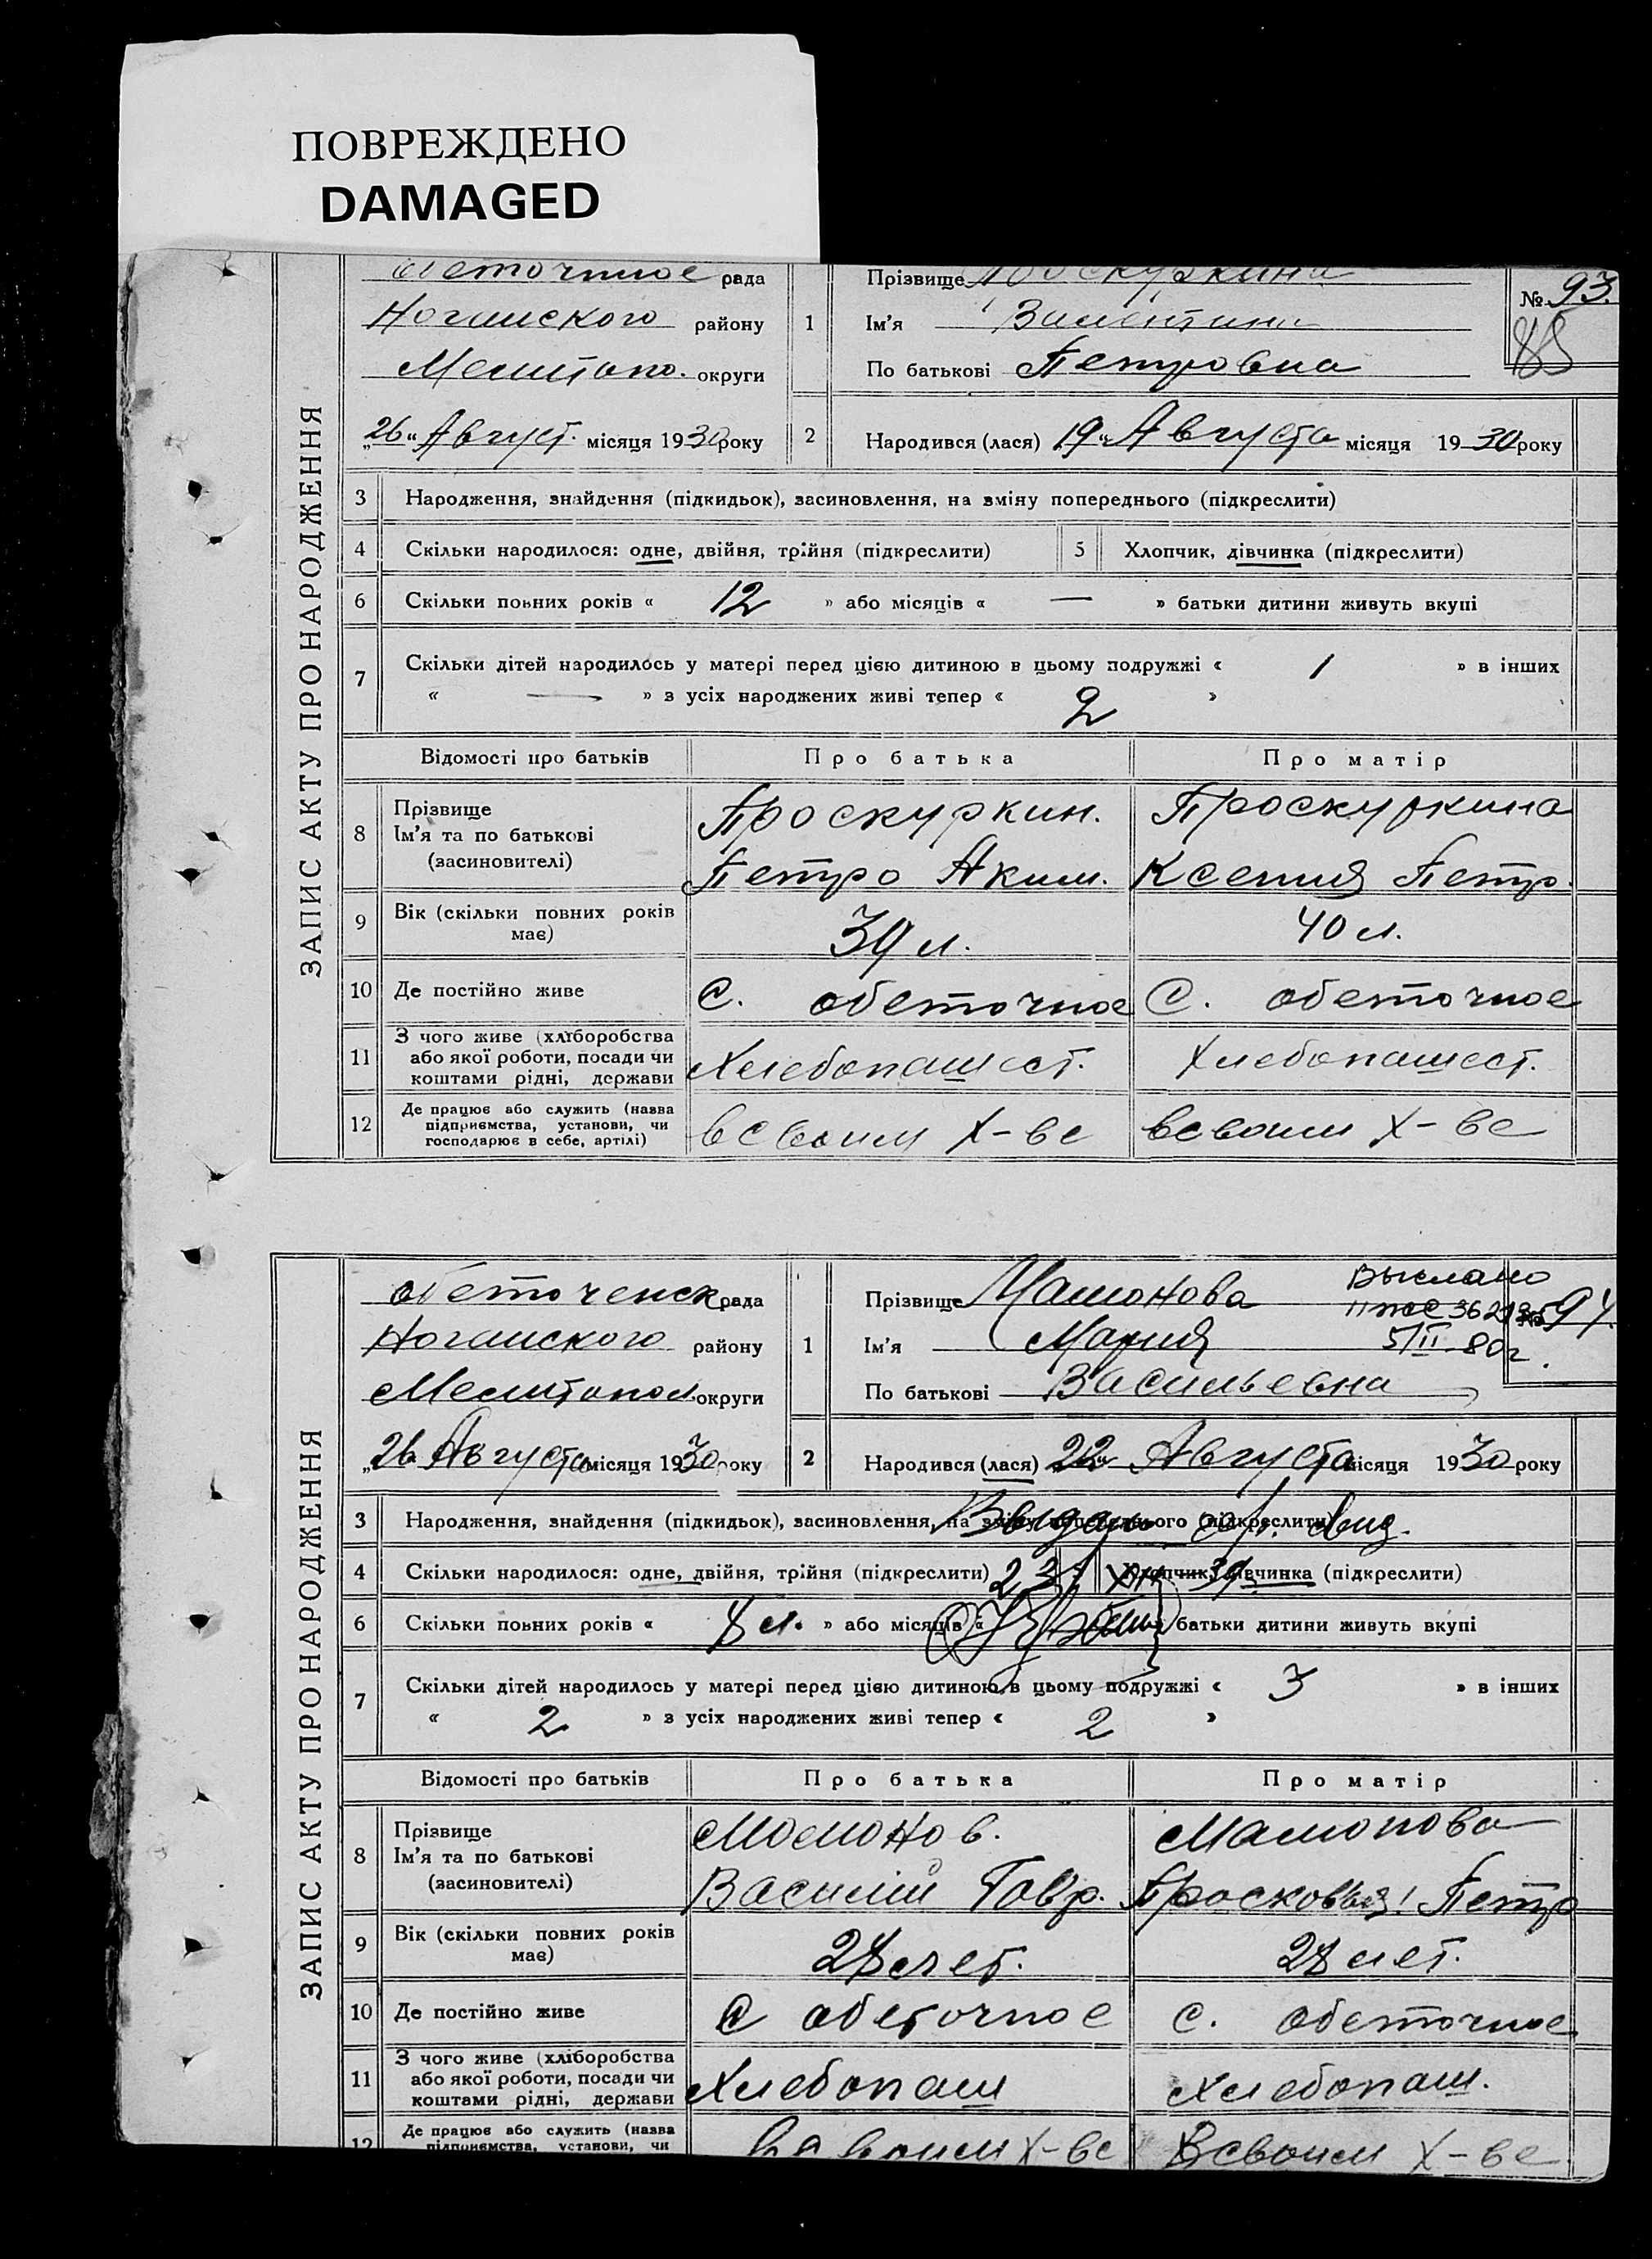 ПОВРЕЖДЕНО
DAMAGED
ЗАПИС АКТУ ПРО НАРОДЖЕННЯ
Обеточное рада
Ногайского району
Мелитопо. округи
„26“ Август. місяця 1930 року
1
Прізвище Проскуркина
Ім’я Валентина
По батькові Петровна
№ 93.
2
Народився (лася) 19 „ Августа місяця 1930 року
3 Народження, знайдення (підкидьок), засиновлення, на зміну попереднього (підкреслити)
4 Скільки народилося: одне, двійня, трійня (підкреслити) 5 Хлопчик, дівчинка (підкреслити)
6 Скільки повних років « 12 » або місяців « — » батьки дитини живуть вкупі
7 Скільки дітей народилось у матері перед цією дитиною в цьому подружжі « 1 » в інших
« — » з усіх народжених живі тепер « 2 »
Відомості про батьків Про батька Про матір
8 Прізвище Ім’я та по батькові (засиновителі)
Проскуркин. Проскуркина
Петро Аким. Ксения Петр.
9 Вік (скільки повних років має) 39 л. 40 л.
10 Де постійно живе С. обеточное С. обеточное
11 З чого живе (хліборобства або якої роботи, посади чи коштами рідні, держави
Хлебопашест. Хлебопашест.
12 Де працює або служить (назва підприємства, установи, чи господарює в себе, артілі)
в своим х-ве в своим х-ве
ЗАПИС АКТУ ПРО НАРОДЖЕННЯ
Обеточенск рада
Ногайского району
Мелитопол округи
„26 Августа місяця 1930 року
1
Прізвище Мамонова
Ім’я Мария
По батькові Васильевна
Выслано
5/II-80г.
№ 94.
2
Народився (лася) 22 „ Августа місяця 1930 року
3 Народження, знайдення (підкидьок), засиновлення, на зміну попереднього (підкреслити)
4 Скільки народилося: одне, двійня, трійня (підкреслити) Хлопчик, дівчинка (підкреслити)
6 Скільки повних років « 8 л. » або місяців « батьки дитини живуть вкупі
7 Скільки дітей народилось у матері перед цією дитиною в цьому подружжі « 3 » в інших
« 2 » з усіх народжених живі тепер « 2 »
Відомості про батьків Про батька Про матір
8 Прізвище Ім’я та по батькові (засиновителі)
Мамонов. Мамонова
Василий Гавр. Просковья Петр
9 Вік (скільки повних років має) 28 лет. 28 лет.
10 Де постійно живе С обеточное С. обеточное
11 З чого живе (хліборобства або якої роботи, посади чи коштами рідні, держави
Хлебопаш Хлебопаш.
12 Де працює або служить (назва підприємства, установи, чи
в своим х-ве В своим х-ве